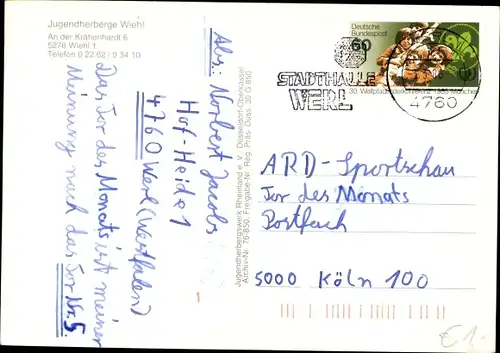 Jugendherberge Wiehl
An der Krähenhardt 6
5276 Wiehl 1
Telefon 0 22 62 / 9 34 10
Das Tor des Monats ist meiner
Meinung nach das Tor Nr. 5.
Abs: Norbert Jacobs
Hof-Heide 1
4760 Werl (Westfalen)
Jugendherbergswerk Rheinland e. V.
Archiv-Nr. 76-850, Freigabe-Nr. Reg. Präs. Düss. 30 G 850
Deutsche
Bundespost
60
30. Weltpfadfinderkonferenz 1985 München
STADTHALLE
WERL
4760
ARD-Sportschau
Tor des Monats
Postfach
5000 Köln 100
1
€ 1,-